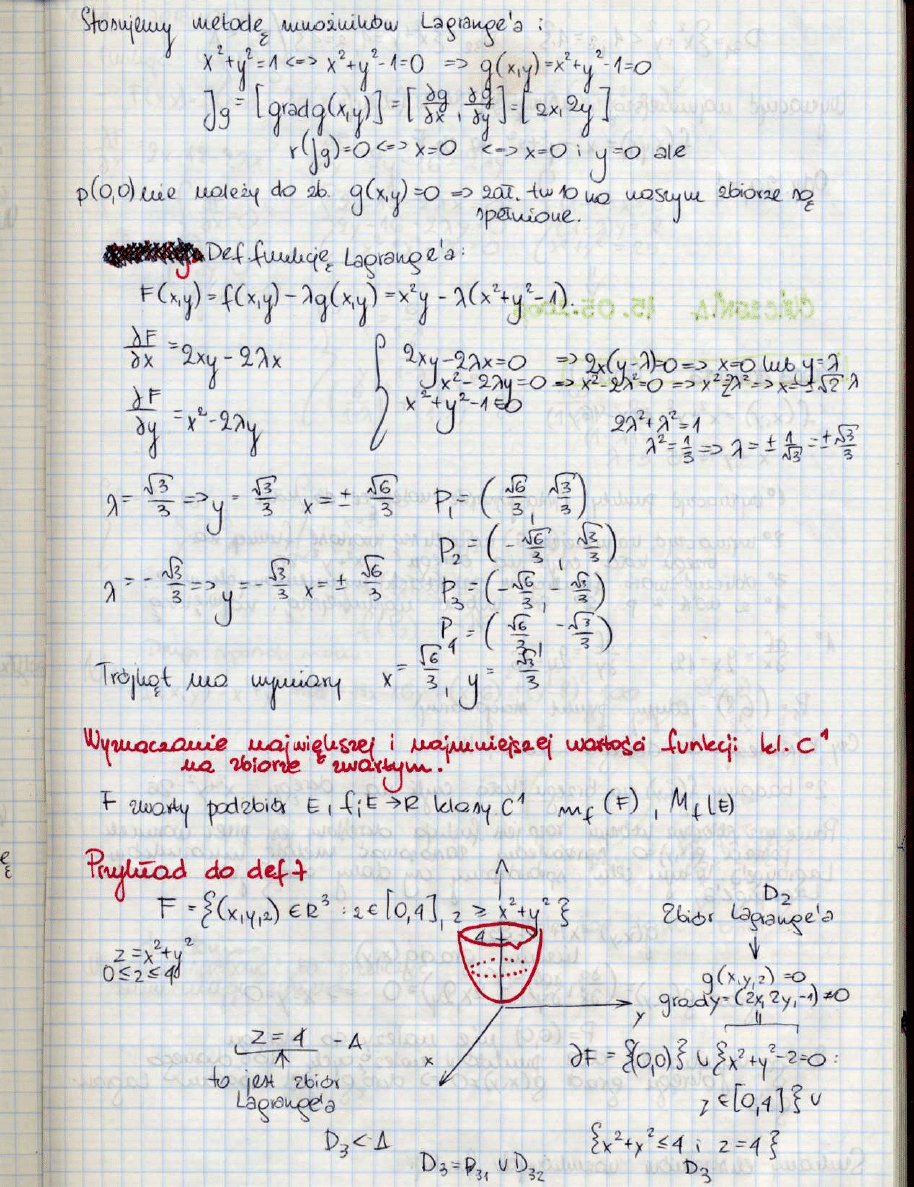 Stosujemy metodę mnożników Lagrange'a :
x²+y²=1 <=> x²+y²-1=0 => g(x,y)=x²+y²-1=0
Jg = [grad g(x,y)] = [∂g/∂x, ∂g/∂y] = [2x, 2y]
r(Jg)=0 <=> x=0 <=> x=0 i y=0 ale
p(0,0) nie należy do zb. g(x,y)=0 => zał. tw 10 na naszym zbiorze są
spełnione.
Def. funkcję Lagrange'a:
F(x,y) = f(x,y) - λg(x,y) = x²y - λ(x²+y²-1).
∂F/∂x = 2xy - 2λx
2xy-2λx=0 => 2x(y-λ)=0 => x=0 lub y=λ
x²-2λy=0 => x²-2λ²=0 => x²=2λ² => x=±√2 λ
∂F/∂y = x²-2λy
x²+y²-1=0
2λ²+λ²=1
λ²=1/3 => λ = ± 1/√3 = ±√3/3
λ = √3/3 => y = √3/3 x = ± √6/3 P₁ = (√6/3, √3/3)
P₂ = (-√6/3, √3/3)
λ = -√3/3 => y = -√3/3 x = ± √6/3 P₃ = (-√6/3, -√3/3)
P₄ = (√6/3, -√3/3)
Trójkąt ma wymiary x = √6/3, y = √3/3
Wyznaczanie największej i najmniejszej wartości funkcji kl. C¹
na zbiorze zwartym.
F zwarty podzbiór E, f: E → R klasy C¹ m_f (F) , M_f (E)
Przykład do def 7
F = {(x,y,z) ∈ R³ : z ∈ [0,4], z ≥ x²+y²}
D₂
Zbiór Lagrange'a
z = x²+y²
0 ≤ z ≤ 4
4
g(x,y,z) = 0
grad g = (2x, 2y, -1) ≠ 0
y
x
z = 4 - Δ
to jest zbiór
Lagrange'a
∂F = {(0,0)} ∪ {x²+y²-z=0 :
z ∈ [0,4]} ∪
{x²+x² ≤ 4 i z=4}
D₃
D₃ < Δ
D₃ = D₃₁ ∪ D₃₂